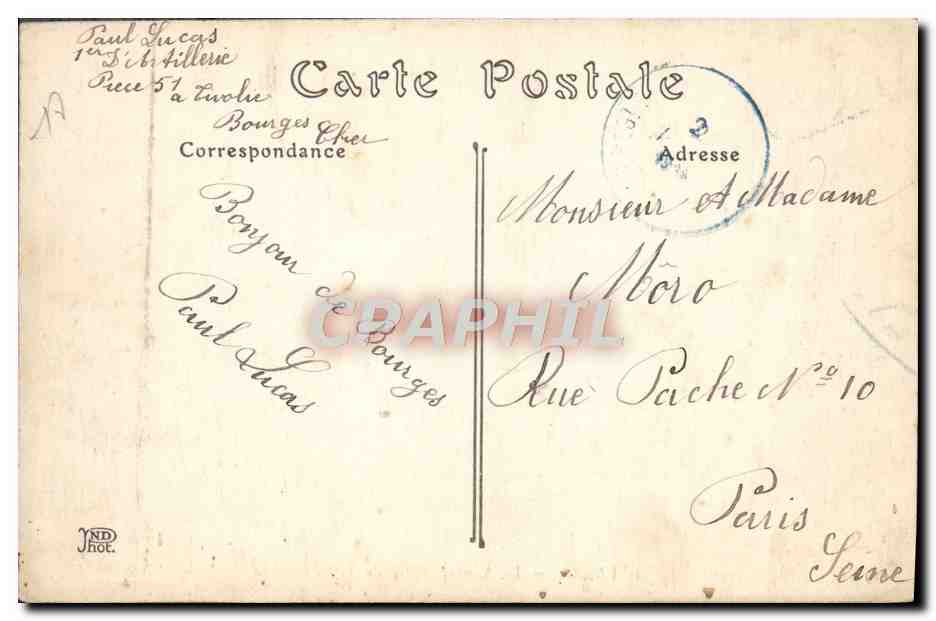 Paul Lucas
1er D'Artillerie
Piece 51
a Tivolie
Bourges Cher
Carte Postale
Correspondance
Adresse
Bonjour de Bourges
Paul Lucas
Monsieur et Madame
Môro
Rue Pache No 10
Paris
Seine
CPAPHIL
ND
Phot.